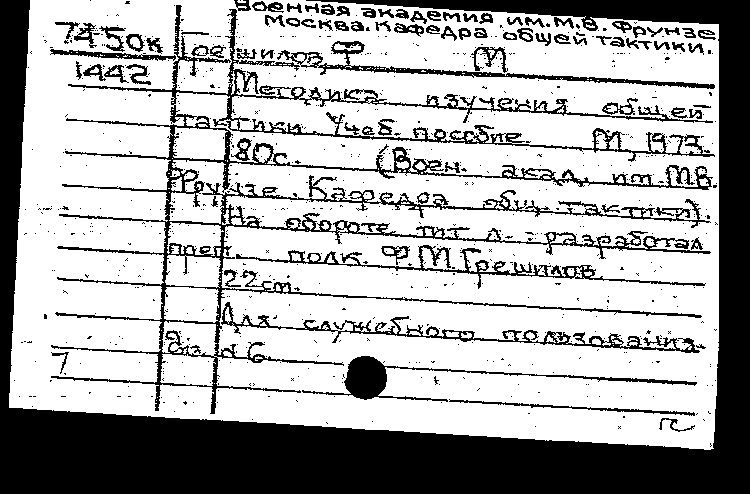 Военная академия им. М.В. Фрунзе.
Москва. Кафедра общей тактики.
74 50к Грешилов, Ф М
1442
Методика изучения общей
тактики. Учеб. пособие М, 1973.
80с. (Воен. акад. им. М.В.
Фрунзе. Кафедра общ. тактики).
На обороте тит л.: разработал
преп. полк. Ф.М. Грешилов
22см.
Для служебного пользования.
Экз. N 6.